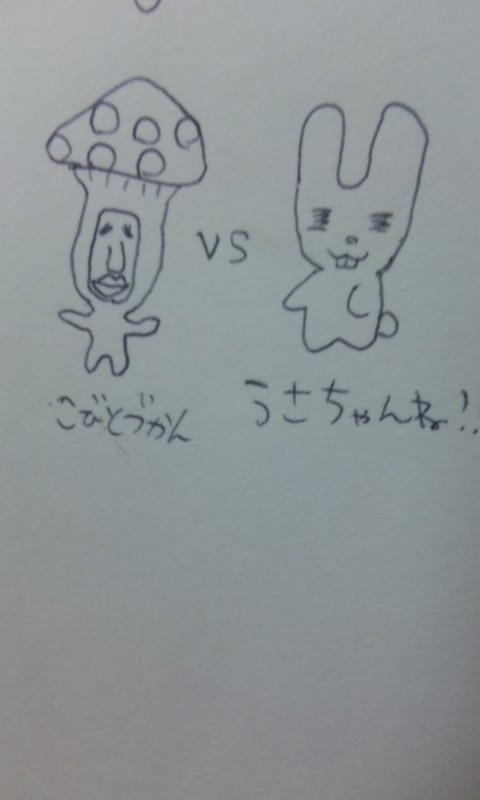 vs
こびとづかん
うさちゃんね!